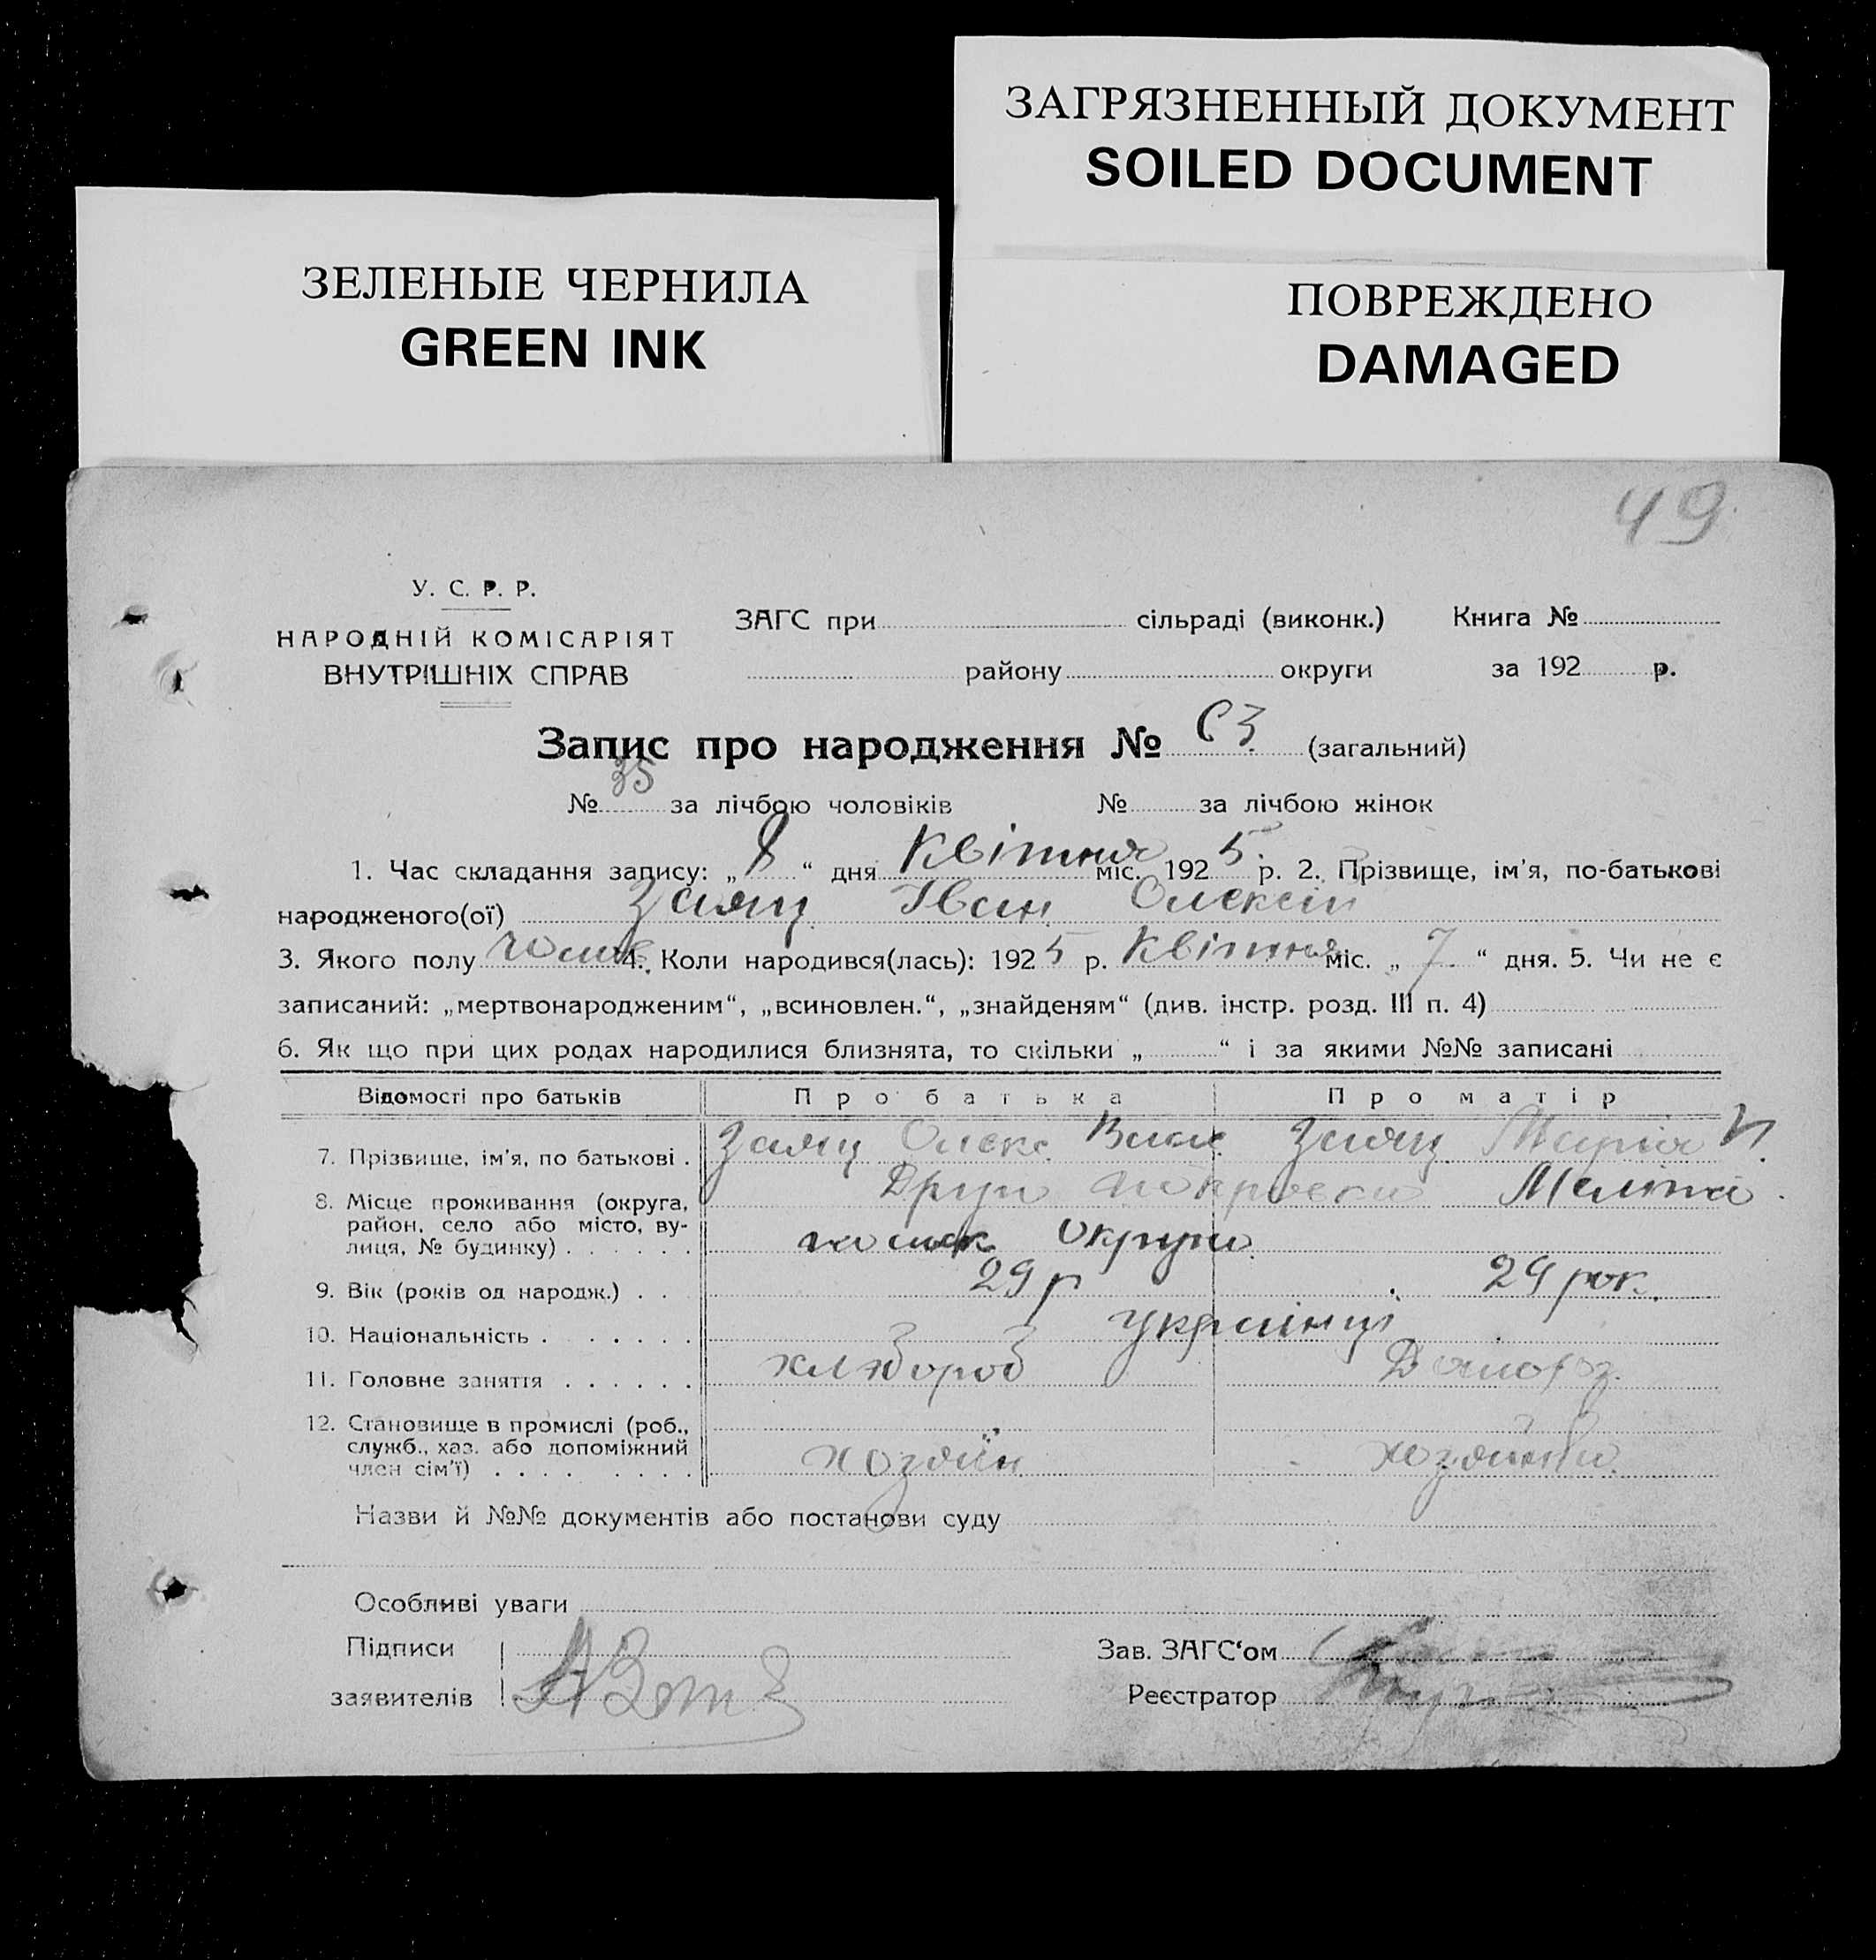 ЗАГРЯЗНЕННЫЙ ДОКУМЕНТ
SOILED DOCUMENT
ЗЕЛЕНЫЕ ЧЕРНИЛА
GREEN INK
ПОВРЕЖДЕНО
DAMAGED
49
У. С. Р. Р.
НАРОДНІЙ КОМІСАРІЯТ
ВНУТРІШНІХ СПРАВ
ЗАГС при сільраді (виконк.) Книга №
району округи за 192 р.
Запис про народження № 63 (загальний)
№ 35 за лічбою чоловіків № за лічбою жінок
1. Час складання запису: „8“ дня Квітня міс. 1925 р. 2. Прізвище, ім'я, по-батькові
народженого(ої) Заяц Іван Олексій
3. Якого полу 4. Коли народився(лась): 1925 р. Квітня міс. „7“ дня. 5. Чи не є
записаний: „мертвонародженим“, „всиновлен.“, „знайденям“ (див. інстр. розд. III п. 4)
6. Як що при цих родах народилися близнята, то скільки „ “ і за якими №№ записані
Відомості про батьків Про батька Про матір
7. Прізвище, ім'я, по батькові . Заяц Олекс. Заяц Марія
8. Місце проживання (округа, район, село або місто, вулиця, № будинку) . . . . . . Друго Покровка Меліто
польск Округи
9. Вік (років од народж.) . . 29 р 29 рок.
10. Національність . . . . . . українці
11. Головне заняття . . . . . . хлібороб Домогоз.
12. Становище в промислі (роб., служб., хаз. або допоміжний член сім'ї) . . . . . . . . хозяїн хозяйка
Назви й №№ документів або постанови суду
Особливі уваги
Підписи
заявителів
Зав. ЗАГС‘ом
Реєстратор